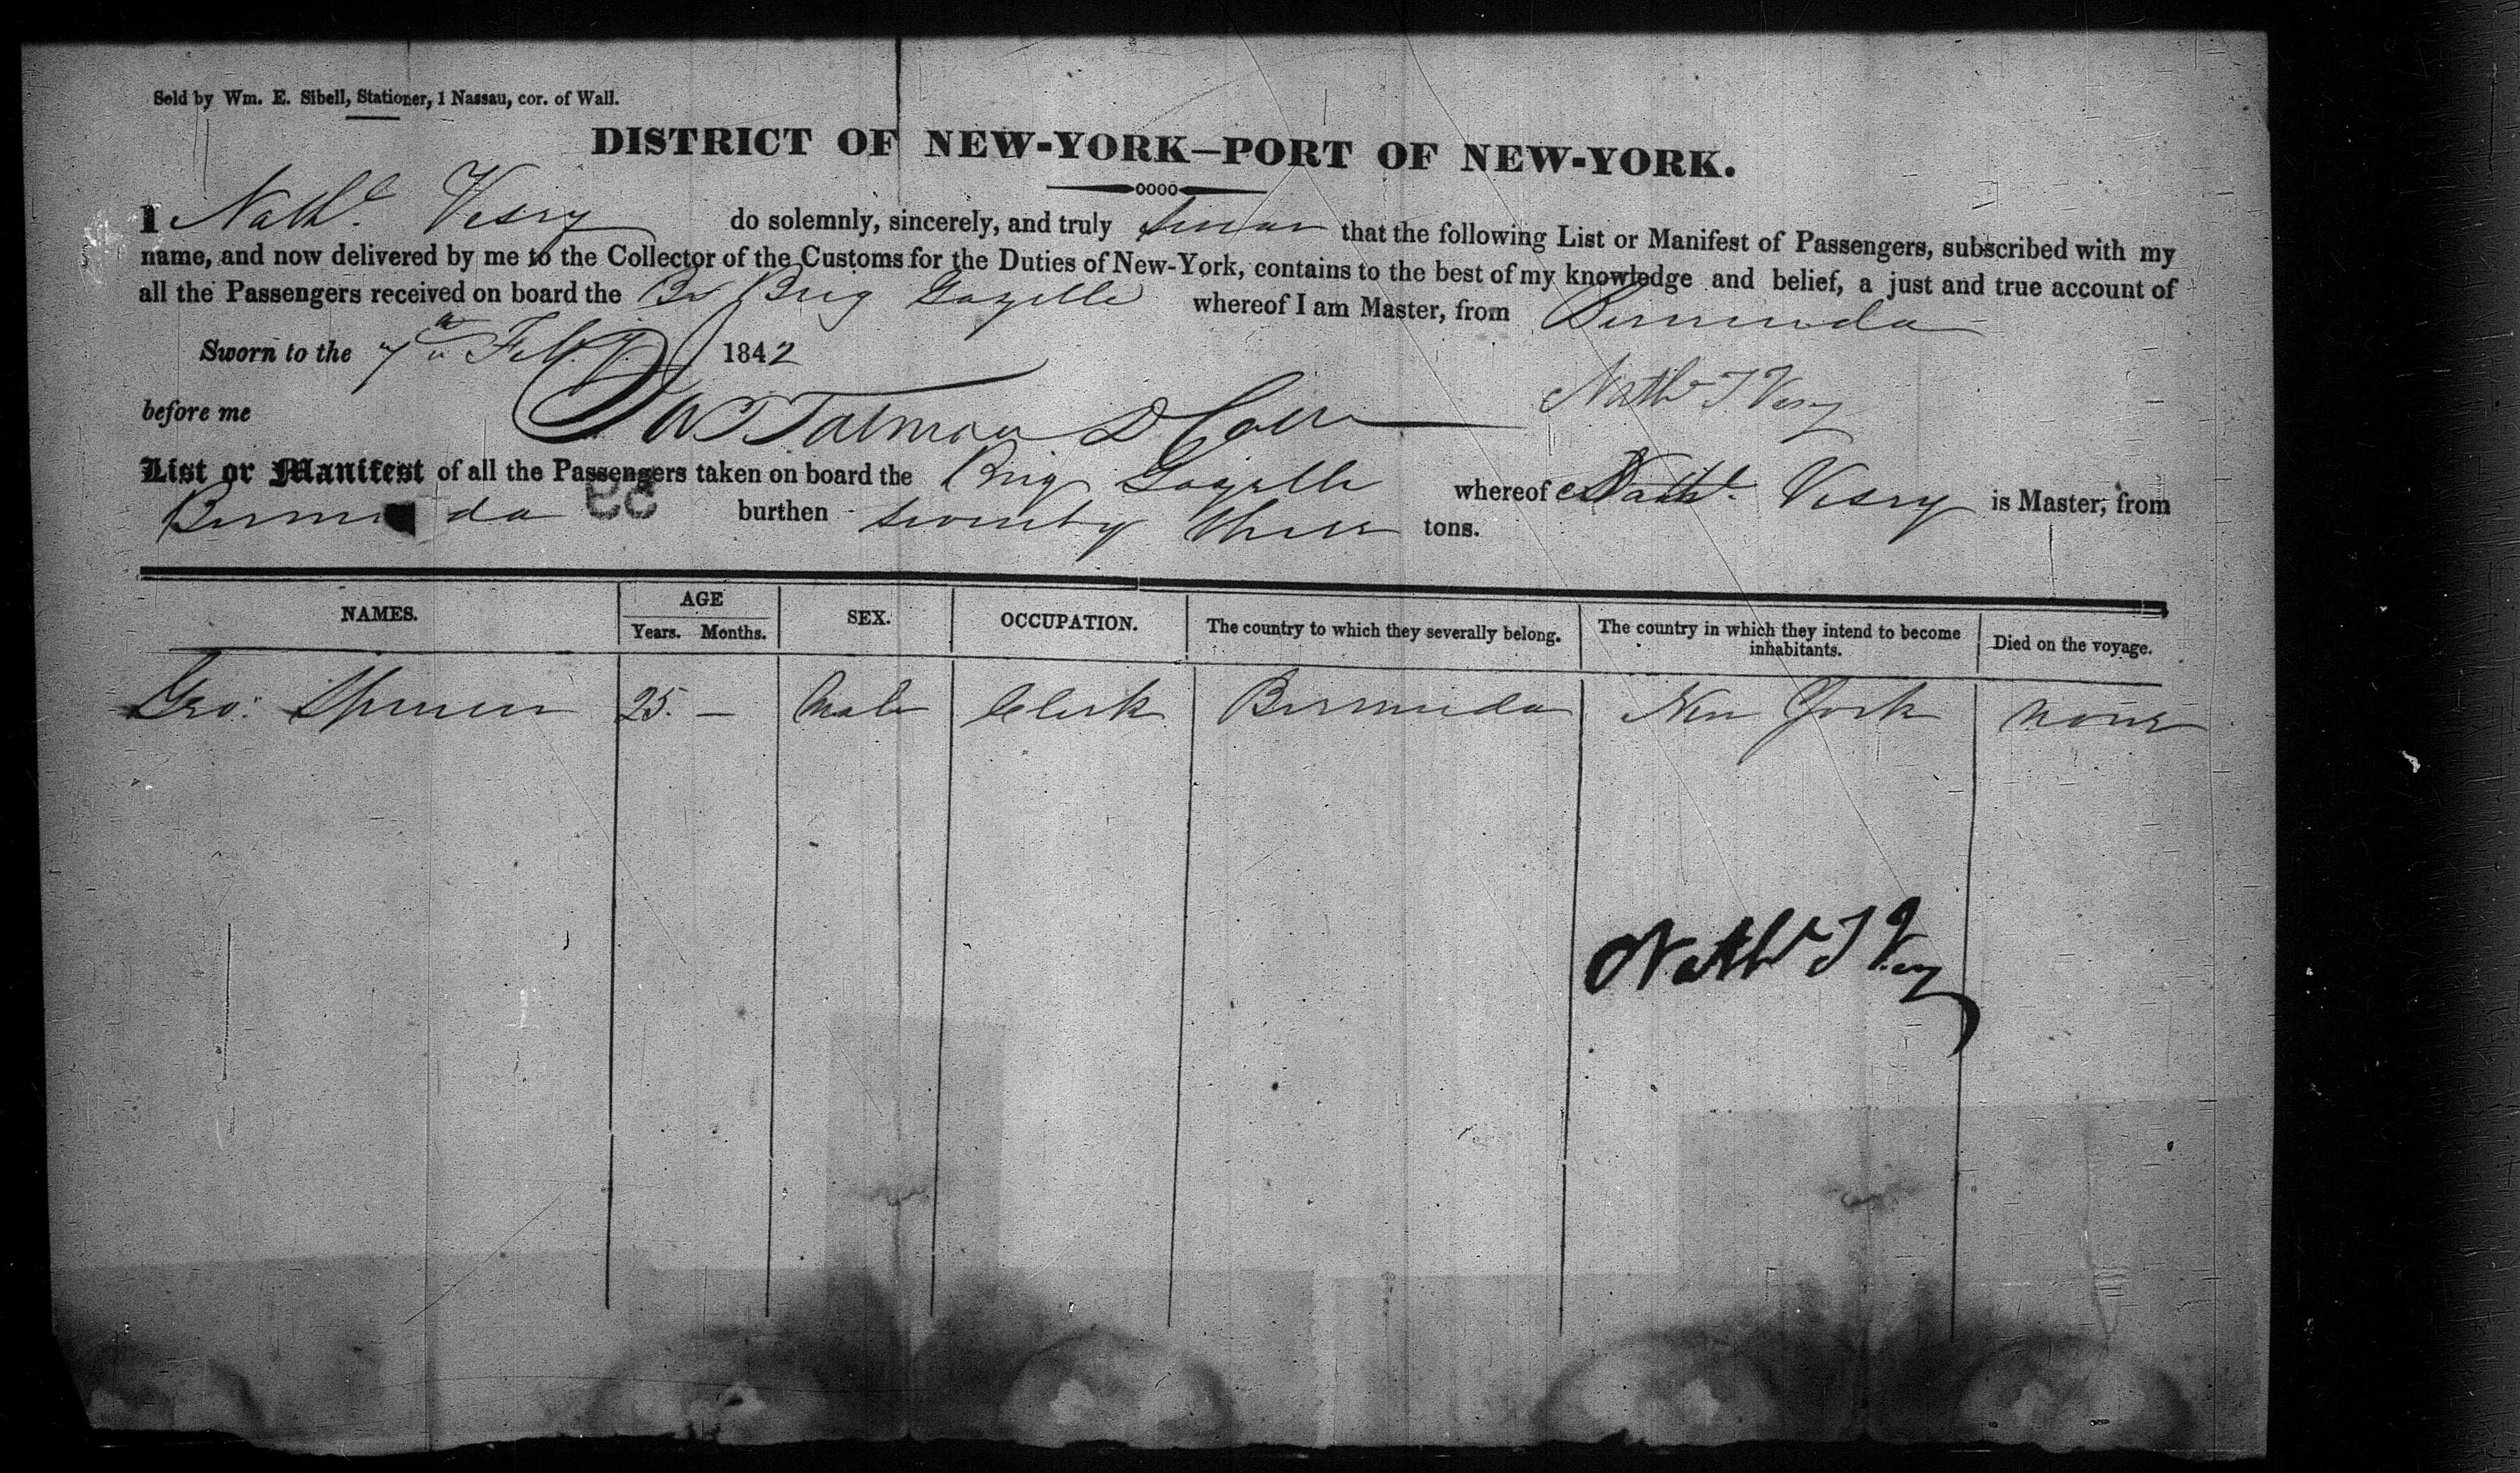 Sold by Wm. E. Sibell, Stationer, 1 Nassau, cor. of Wall.
DISTRICT OF NEW-YORK—PORT OF NEW-YORK.
I Nathl. Vesey do solemnly, sincerely, and truly swear that the following List or Manifest of Passengers, subscribed with my
name, and now delivered by me to the Collector of the Customs for the Duties of New-York, contains to the best of my knowledge and belief, a just and true account of
all the Passengers received on board the Br Brig Gazelle whereof I am Master, from Bermuda
Sworn to the 7th Feby. 1842
Nathl T Vesey
before me Talman D Coll
List or Manifest of all the Passengers taken on board the Brig Gazelle whereof Nathl. Vesey is Master, from
Bermuda burthen seventy three tons.
NAMES. AGE Years. Months. SEX. OCCUPATION. The country to which they severally belong. The country in which they intend to become inhabitants. Died on the voyage.
Geo. Spencer 25. — Male Clerk Bermuda New York none
Nathl T Vesey